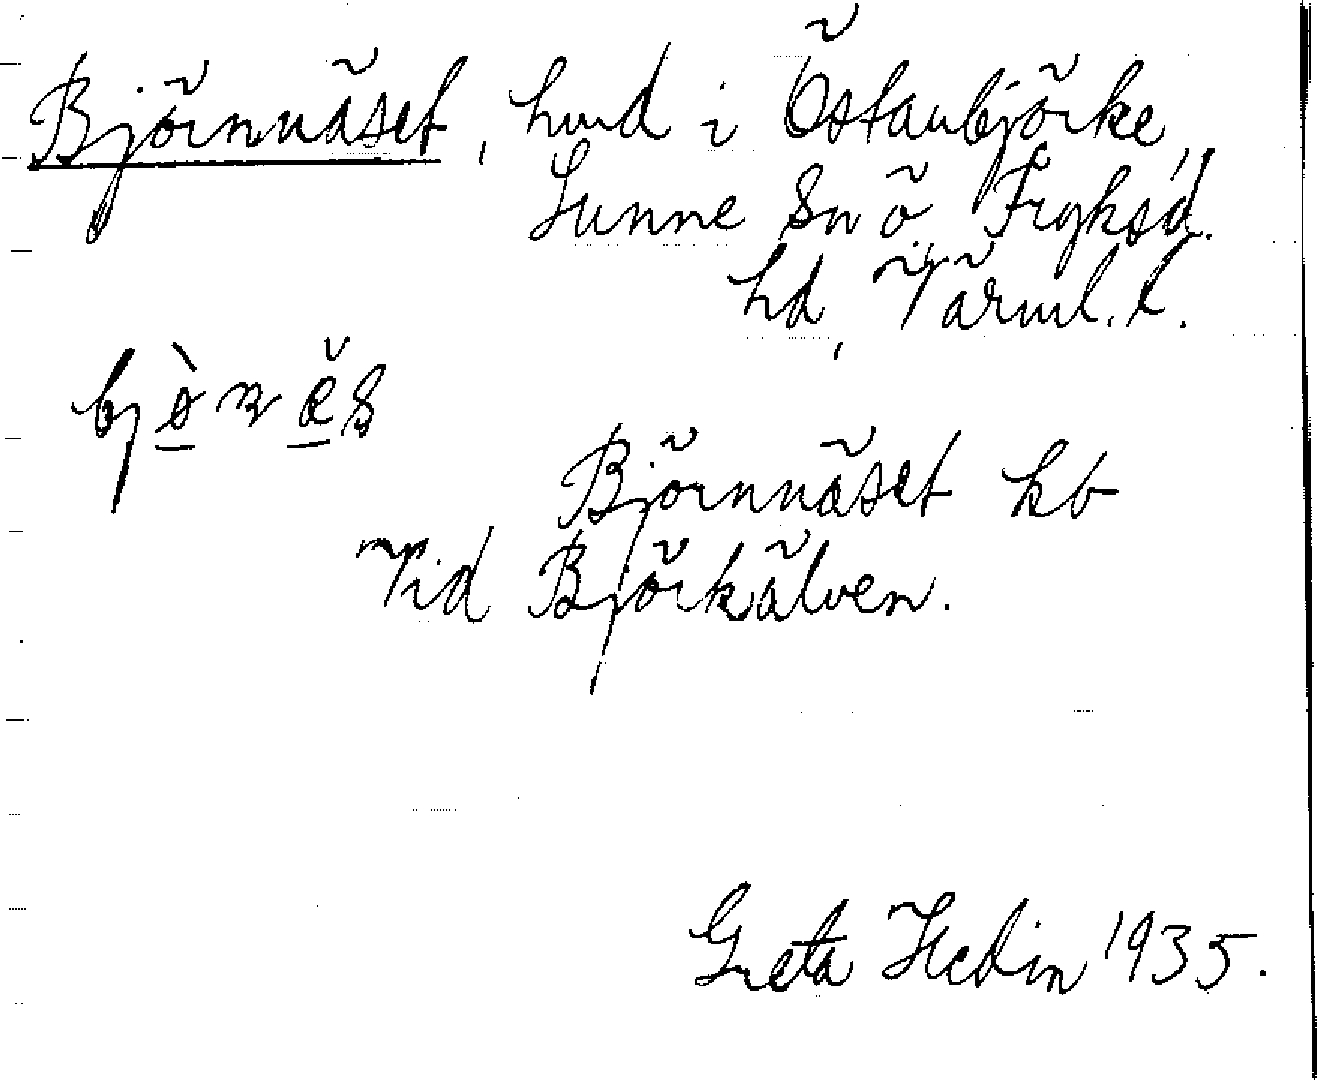 Björnnäset, hmd i Östanbjörke,
Sunne sn o Fryksd.
hd, Värml. l.
Björnnäset kb
Vid Björkälven.
Greta Hedin 1935.